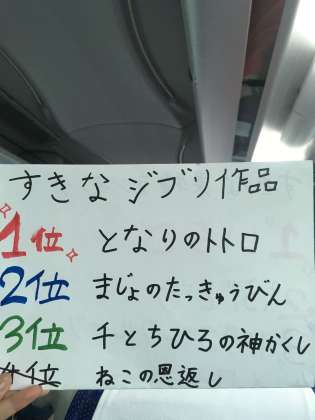 すきなジブリ作品
1位 となりのトトロ
2位 まじょのたっきゅうびん
3位 千とちひろの神かくし
4位 ねこの恩返し